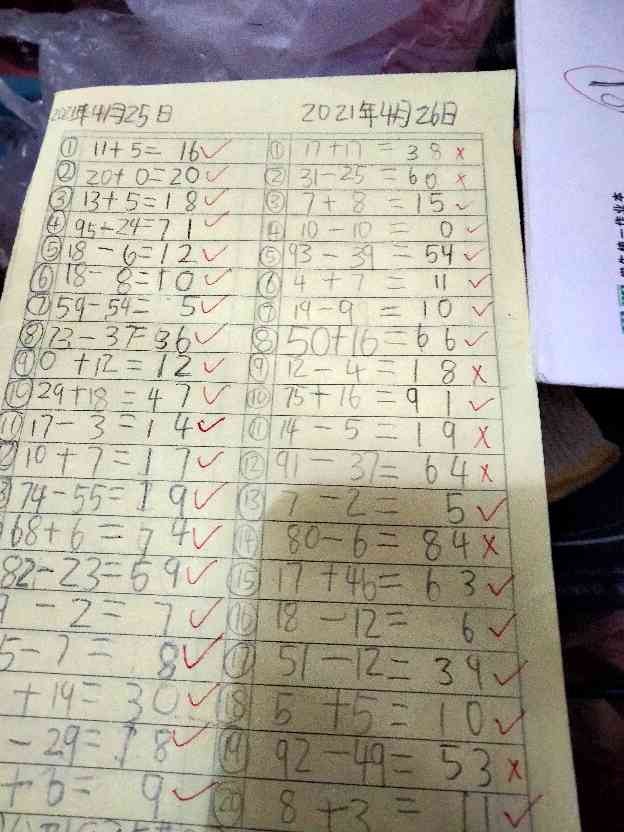 2021年4月25日
① 11+5= 16✓
② 20+0=20✓
③ 13+5=18✓
④ 95-24=71✓
⑤ 18-6=12✓
⑥ 18-8=10✓
⑦ 59-54= 5✓
⑧ 73-37=36✓
⑨ 0+12=12✓
⑩ 29+18=47✓
⑪ 17-3=14✓
10+7=17✓
74-55=19✓
68+6=74✓
82-23=59✓
-2=7✓
5-7=8✓
+19=30✓
-29=18✓
9✓
2021年4月26日
① 17+17=38×
② 31-25=60×
③ 7+8=15✓
④ 10-10=0✓
⑤ 93-39=54✓
⑥ 4+7=11✓
⑦ 19-9=10✓
⑧ 50+16=66✓
⑨ 12-4=18×
⑩ 75+16=91✓
⑪ 14-5=19×
⑫ 91-37=64×
⑬ 7-2=5✓
⑭ 80-6=84×
⑮ 17+46=63✓
⑯ 18-12=6✓
⑰ 51-12=39✓
⑱ 5+5=10✓
⑲ 92-49=53×
⑳ 8+3=11✓